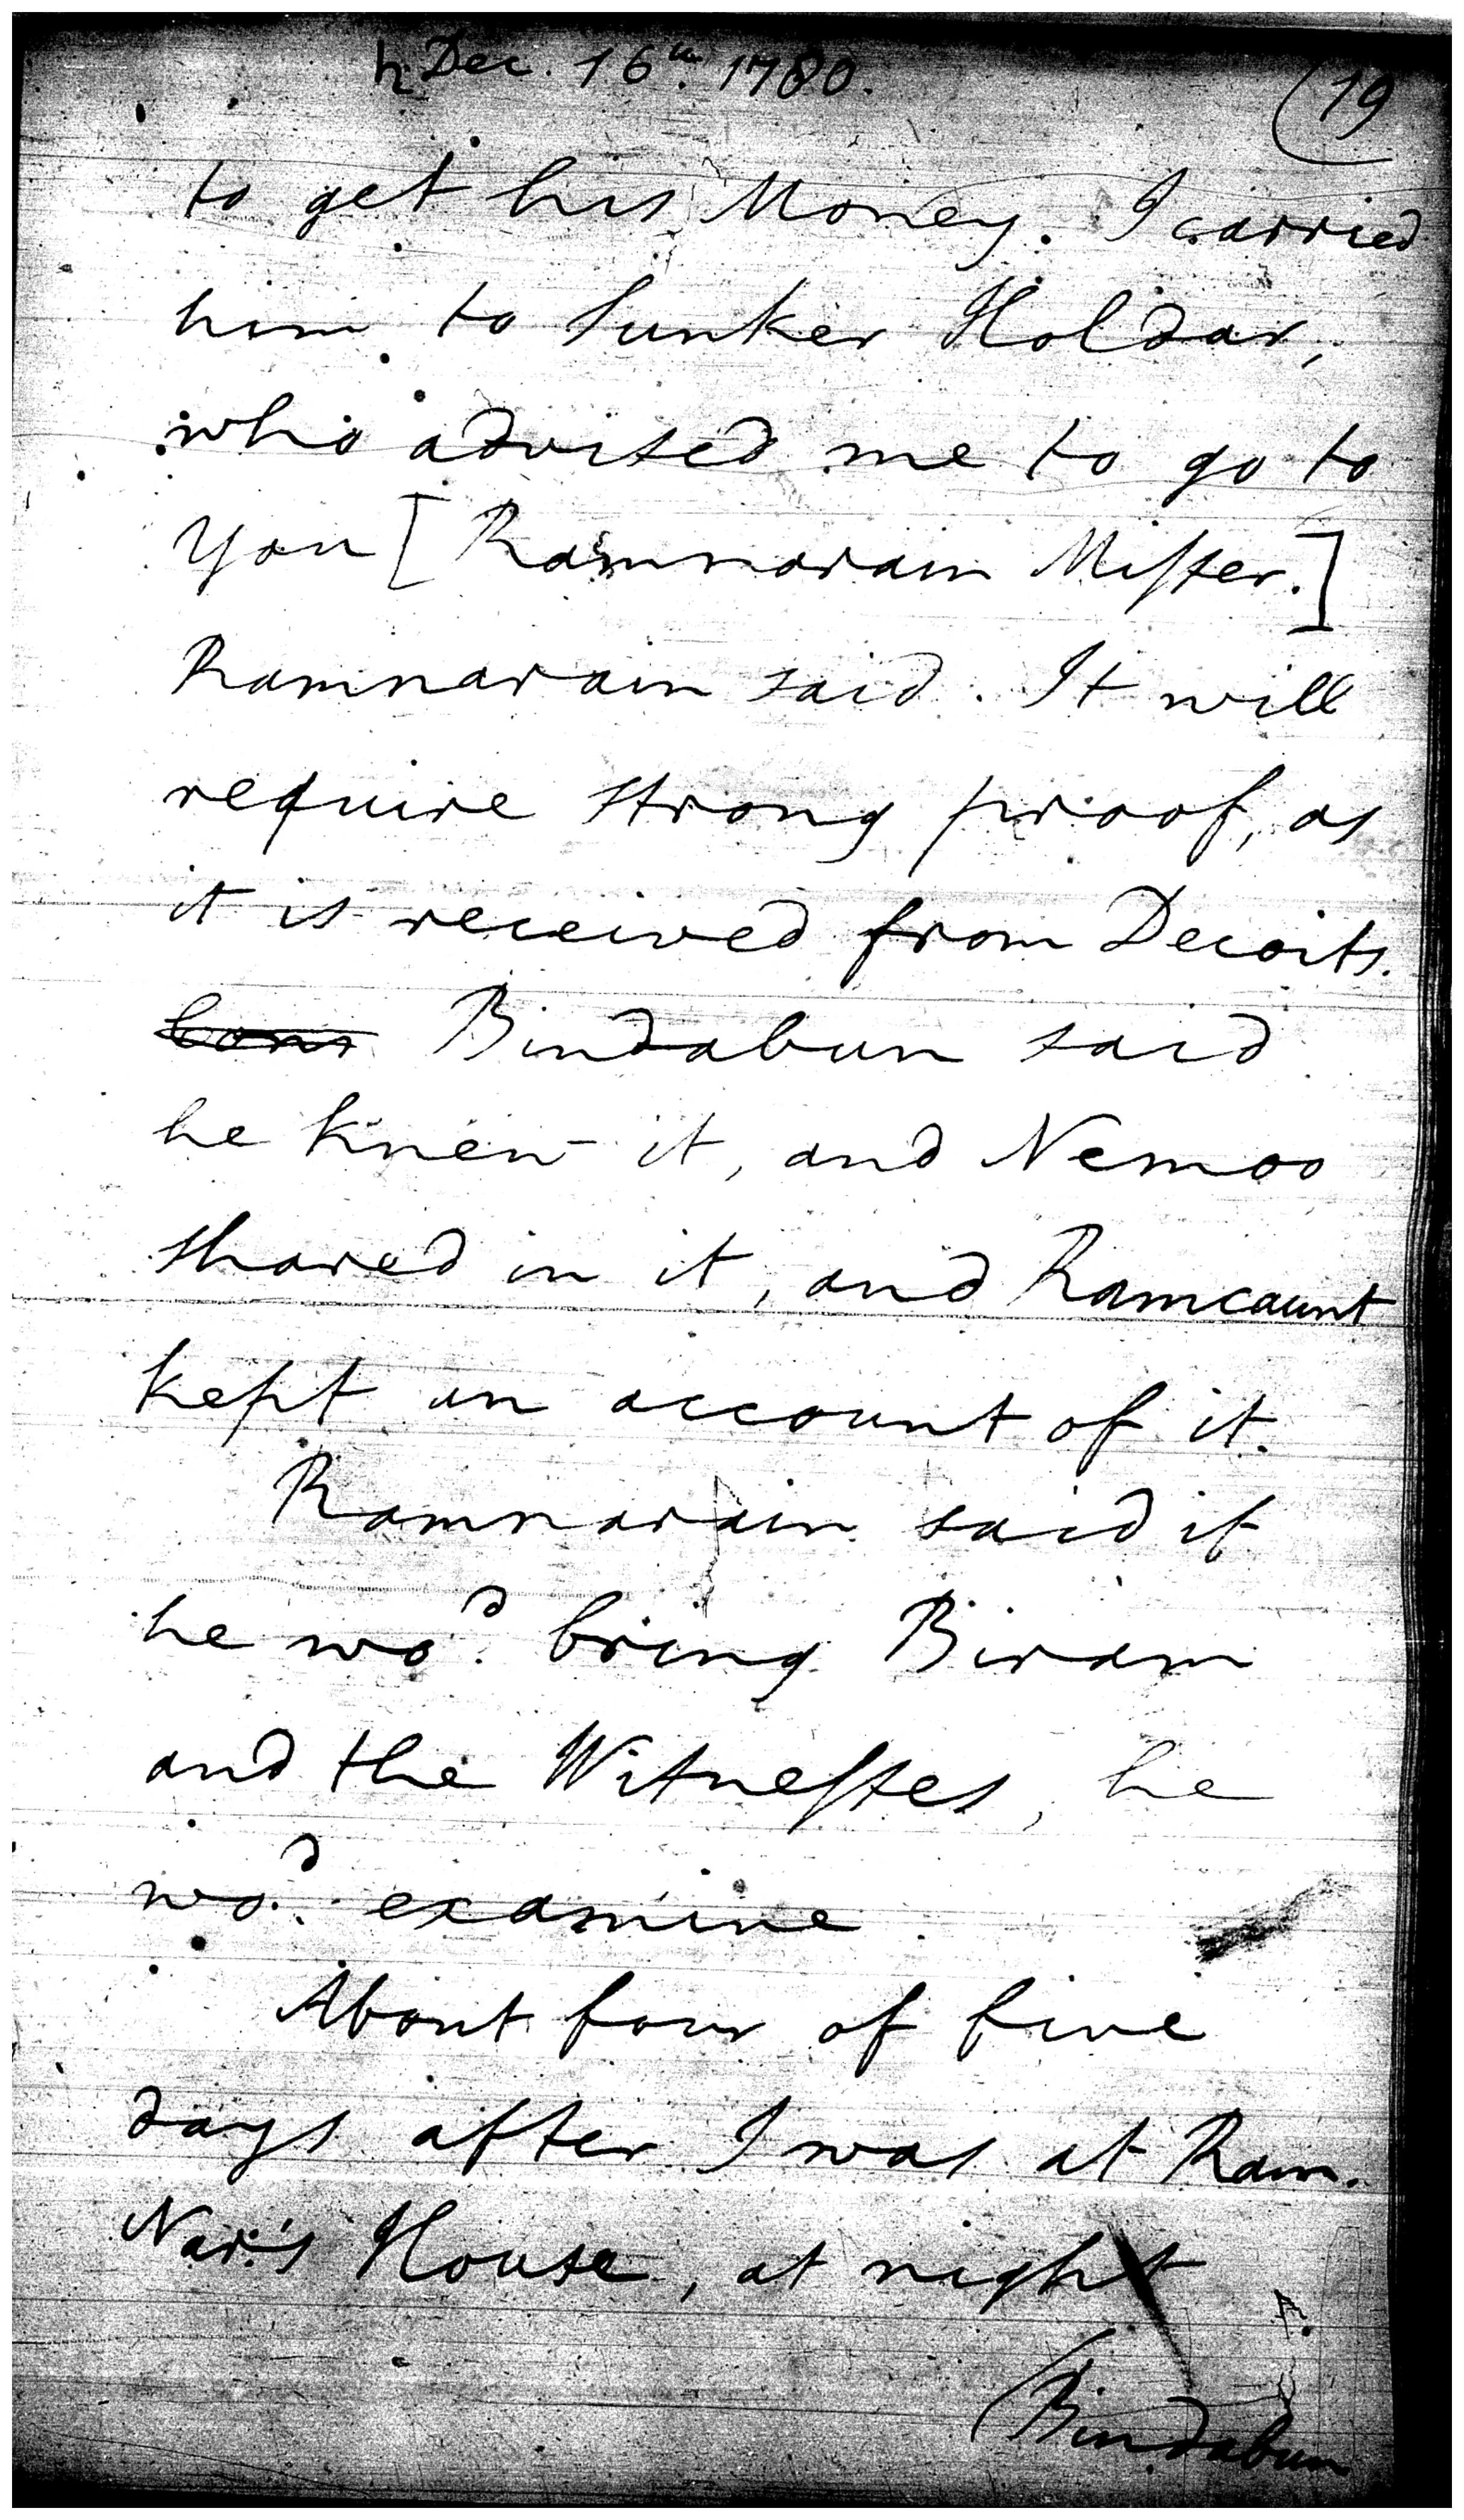 ♄ Dec. 16th. 1780.
(19
to get his Money. I carried
him to Sunker Holdar,
who advised me to go to
you [Ramnarain Misser.]
Ramnarain said. It will
require strong proof, as
it is received from Decoits.
Bindabun said
he knew it, and Nemoo
shared in it, and Ramcaunt
kept an account of it.
Ramnarain said if
he wod. bring Biram
and the Witnesses, he
wod. examine.
About four of five
days after I was at Ram.
Nar.'s House, at night
(Bindabun